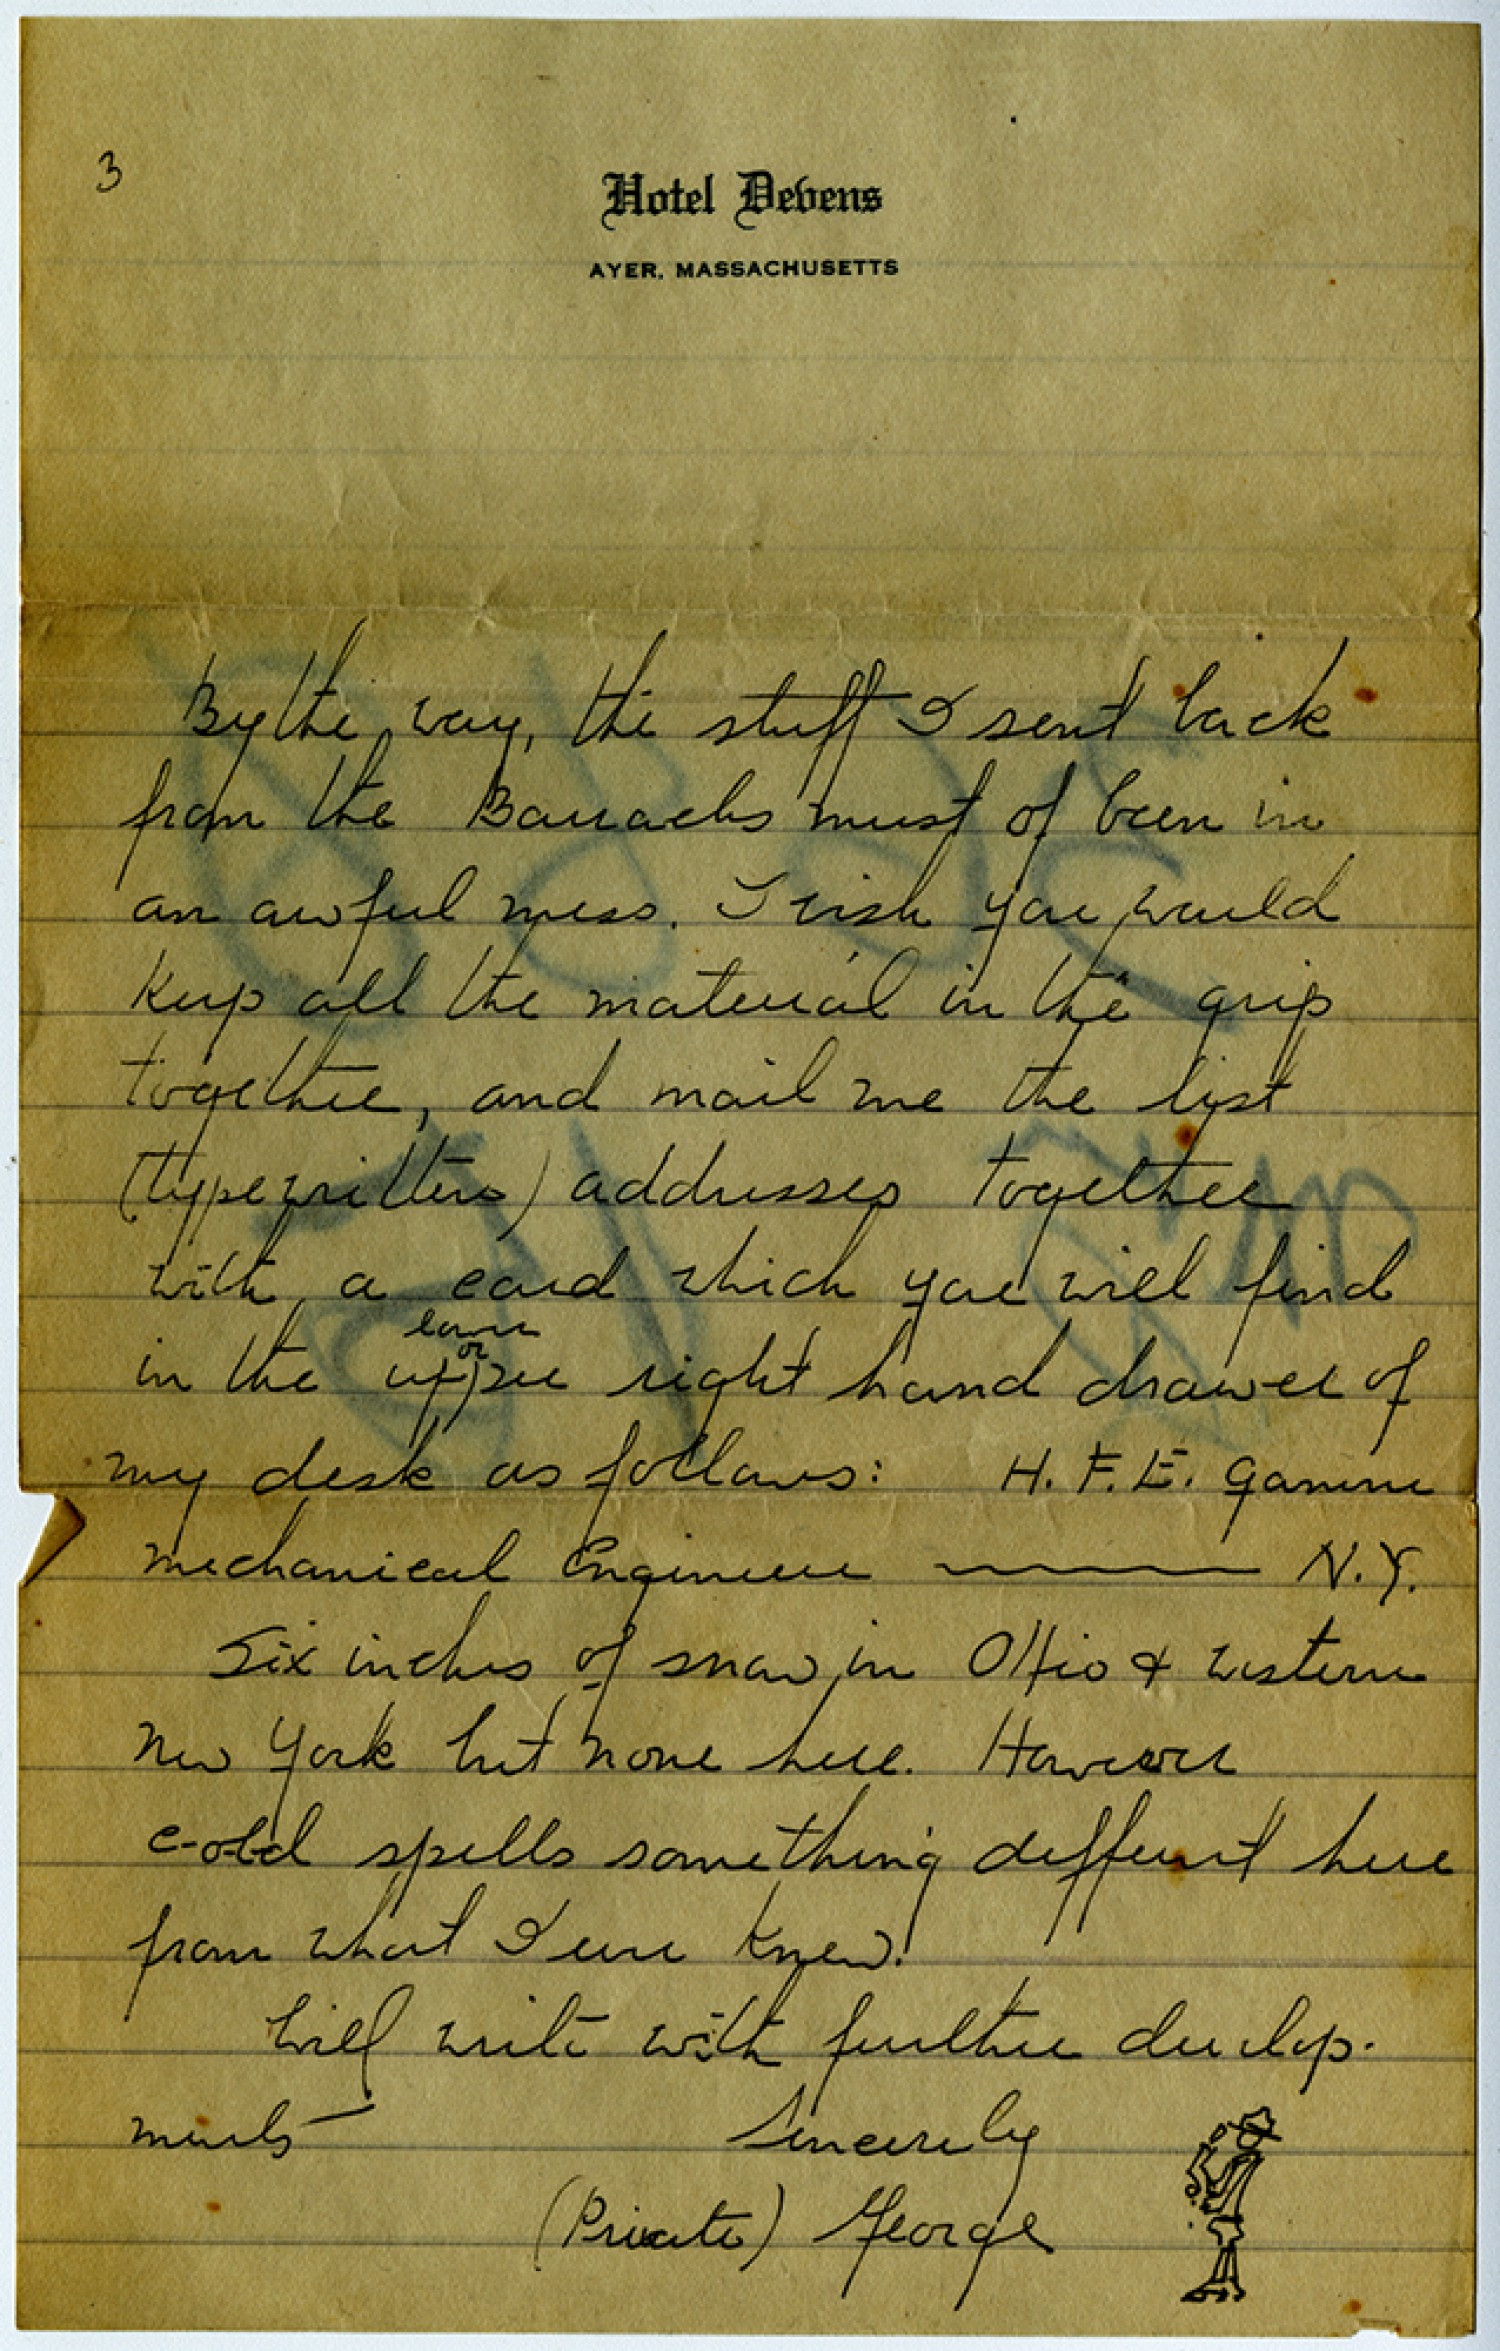 3
Hotel Devens
AYER, MASSACHUSETTS
By the way, the stuff I sent back
from the Barracks must of been in
an awful mess. I wish you would
keep all the material in the grip
together, and mail me the list
(typewritten) addresses together
with a card which you will find
lower
or
in the upper right hand drawer of
my desk as follows: H. F. E.
mechanical Engineer ——— N.Y.
Six inches of snow in Ohio & western
New York but none here. However
cold spells something different here
from what I ever knew.
Will write with further develop-
ments — Sincerely
(Private) George